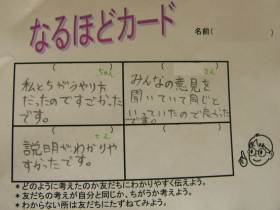 なるほどカード
名前(　　　　)
(　　　ちゃん)
私とちがうやり方
だったのですごかった
です。
(　　　さん)
みんなの意見を
聞いていて同じと
いっていたので良かった
です。
(　　　さん)
説明がわかりや
すかったです。
(　　　　)
*どのように考えたのか友だちにわかりやすく伝えよう。
*友だちの考えが自分と同じか、ちがうか考えよう。
*わからない所は友だちにたずねてみよう。